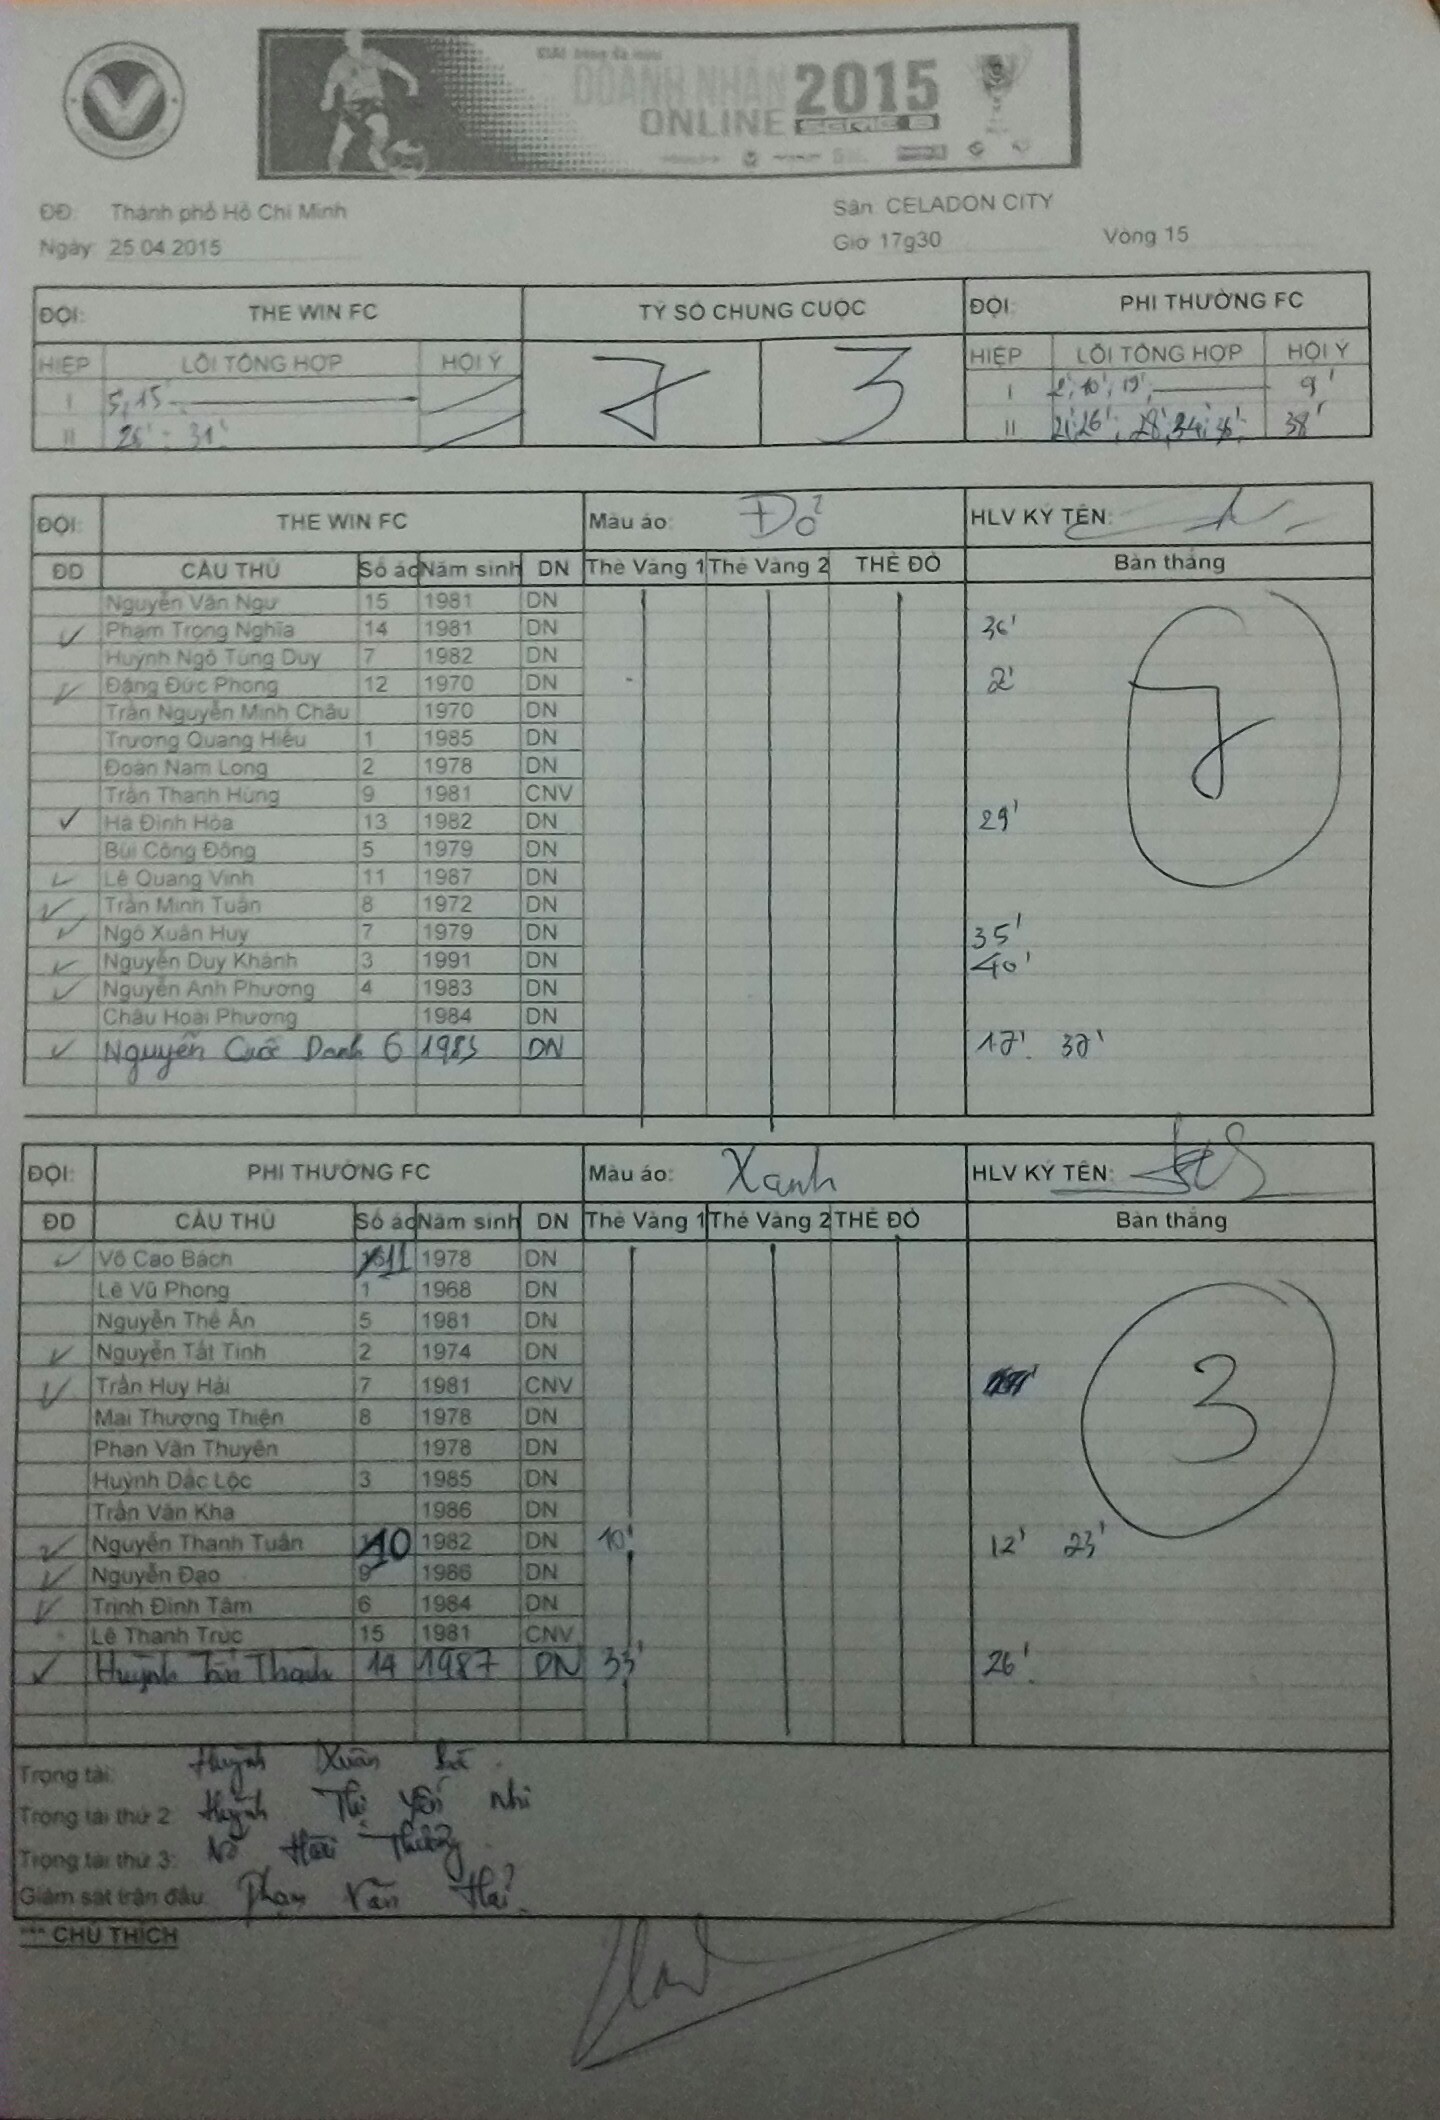 DOANH NHÂN 2015
ONLINE SERIE B
ĐĐ: Thành phố Hồ Chí Minh Sân CELADON CITY
Ngày: 25.04.2015 Giờ 17g30 Vòng 15
ĐỘI: THE WIN FC TỶ SỐ CHUNG CUỘC ĐỘI: PHI THƯỜNG FC
HIỆP LỖI TỔNG HỢP HỘI Ý 7 3 HIỆP LỖI TỔNG HỢP HỘI Ý
I 5, 15 I 2', 10', 19' 9'
II 31' II 21' 26' 28' 34' 36' 38'
ĐỘI: THE WIN FC Màu áo: Đỏ HLV KÝ TÊN:
ĐD CẦU THỦ Số áo Năm sinh DN Thẻ Vàng 1 Thẻ Vàng 2 THẺ ĐỎ Bàn thắng
Nguyễn Văn Ngư 15 1981 DN
Phạm Trọng Nghĩa 14 1981 DN 36'
Huỳnh Ngô Tùng Duy 7 1982 DN
Đặng Đức Phong 12 1970 DN 2'
Trần Nguyễn Minh Châu 1970 DN
Trương Quang Hiếu 1 1985 DN
Đoàn Nam Long 2 1978 DN
Trần Thanh Hùng 9 1981 CNV
Hà Đình Hòa 13 1982 DN 29'
Bùi Công Đồng 5 1979 DN
Lê Quang Vinh 11 1987 DN
Trần Minh Tuấn 8 1972 DN
Ngô Xuân Huy 7 1979 DN 35'
Nguyễn Duy Khánh 3 1991 DN 40'
Nguyễn Anh Phương 4 1983 DN
Châu Hoài Phương 1984 DN
Nguyễn Danh 6 1983 DN 17' 37'
7
ĐỘI: PHI THƯỜNG FC Màu áo: Xanh HLV KÝ TÊN:
ĐD CẦU THỦ Số áo Năm sinh DN Thẻ Vàng 1 Thẻ Vàng 2 THẺ ĐỎ Bàn thắng
Võ Cao Bách 11 1978 DN
Lê Vũ Phong 1 1968 DN
Nguyễn Thế Ân 5 1981 DN
Nguyễn Tất Tính 2 1974 DN
Trần Huy Hải 7 1981 CNV
Mai Thượng Thiện 8 1978 DN
Phan Văn Thuyên 1978 DN
Huỳnh Dắc Lộc 3 1985 DN
Trần Văn Kha 1986 DN
Nguyễn Thanh Tuấn 10 1982 DN 10' 12' 23'
Nguyễn Đạo 9 1986 DN
Trịnh Đình Tâm 6 1984 DN
Lê Thanh Trúc 15 1981 CNV
Huỳnh Tấn Thanh 14 1987 DN 33' 26'
3
Trọng tài: Huỳnh Xuân
Trọng tài thứ 2: Huỳnh Thị Yến Nhi
Trọng tài thứ 3: Hoài Thương
Giám sát trận đấu: Phạm Văn Hải
*** CHÚ THÍCH